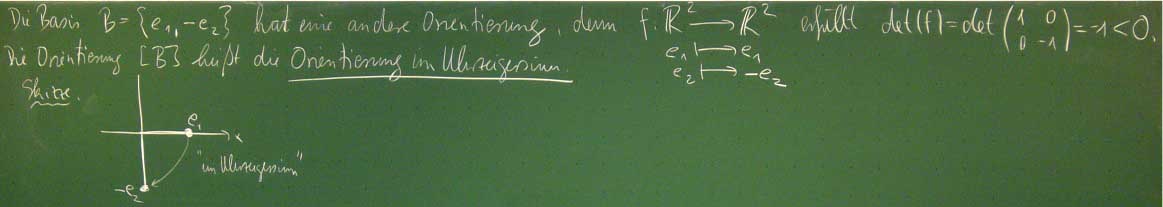 Die Basis B = {e₁, -e₂} hat eine andere Orientierung, denn f: ℝ² → ℝ² erfüllt det(f) = det (1 0 0 -1) = -1 < 0.
e₁ ↦ e₁
e₂ ↦ -e₂
Die Orientierung [B] heißt die Orientierung im Uhrzeigersinn.
Skizze.
e₁
x
"im Uhrzeigersinn"
-e₂